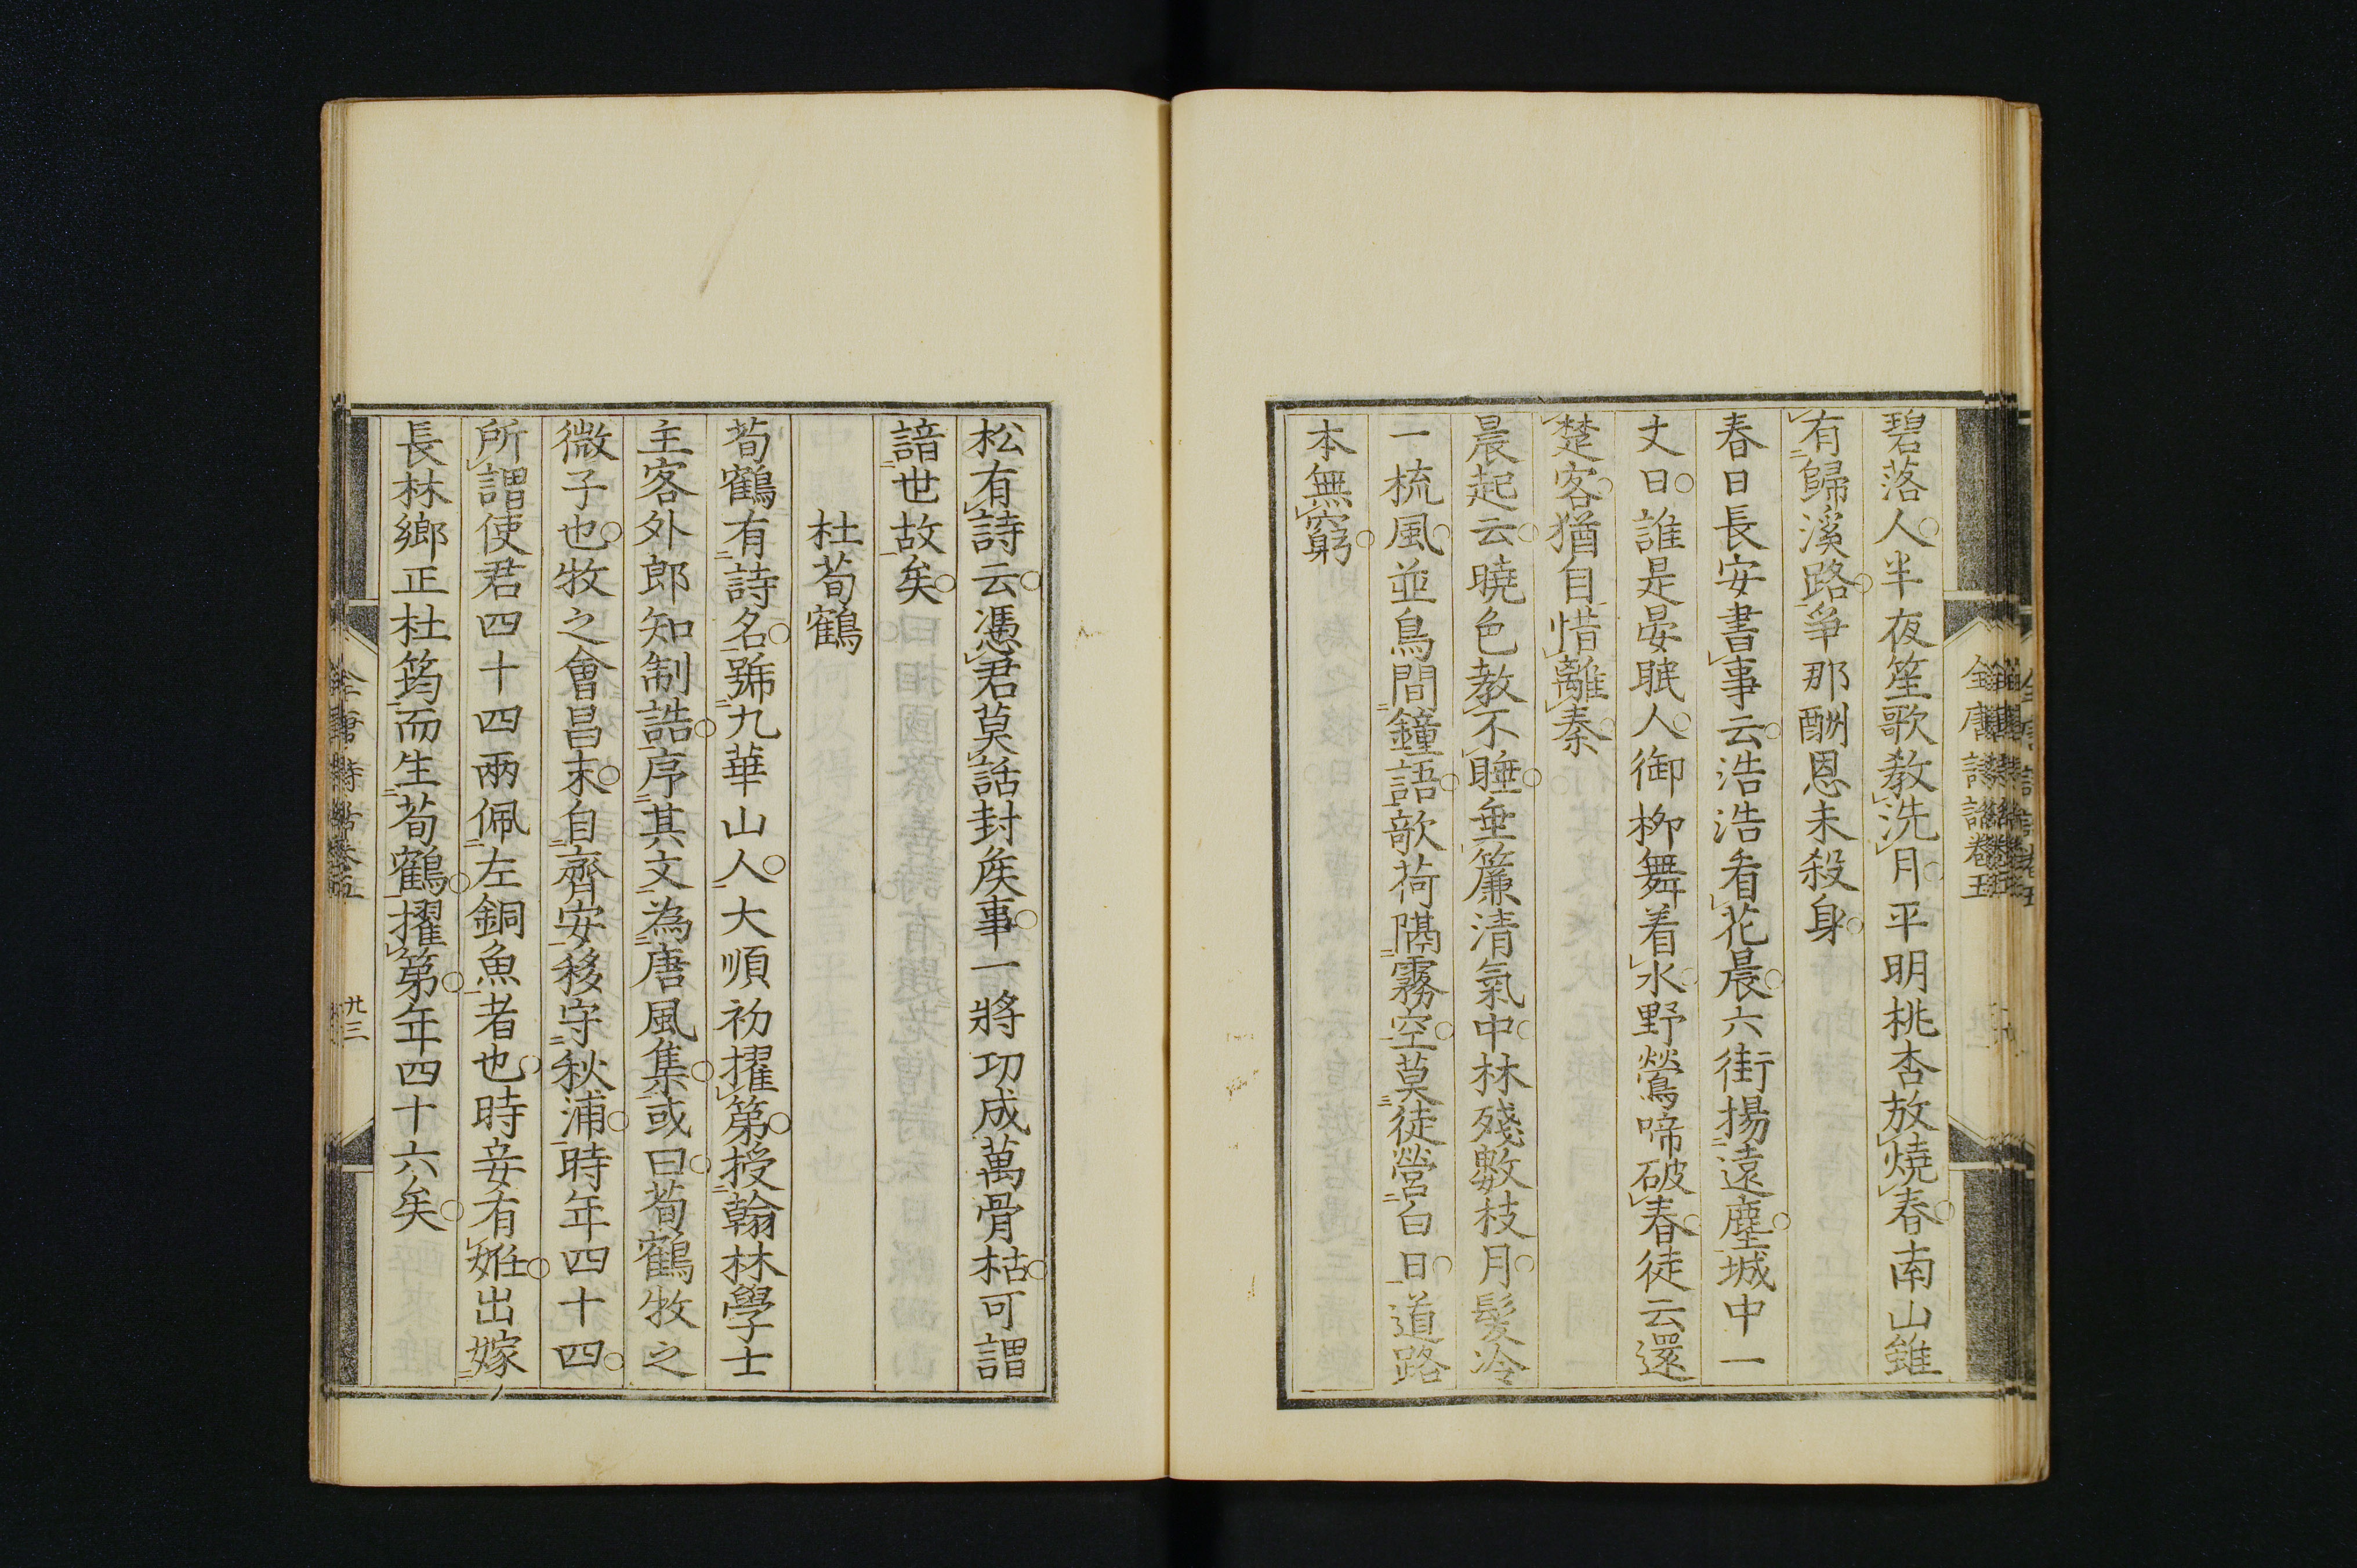 碧落人半夜笙歌教洗月平明桃杏放燒春南山雖
有歸溪路爭那酬恩未殺身
春日長安書事云浩浩看花晨六街揚遠塵城中一
丈日誰是晏眠人御柳舞着水野鶯啼破春徒云還
楚客猶自惜離秦
晨起云曉色教不睡垂簾清氣中林殘數枝月髪冷
一梳風並鳥間鐘語欹荷隔霧空莫徒營白日道路
本無窮
全唐詩話卷五
松有詩云憑君莫話封矦事一將功成萬骨枯可謂
諳世故矣
杜荀鶴
荀鶴有詩名號九華山人大順初擢第授翰林學士
主客外郎知制誥序其文為唐風集或曰荀鶴牧之
微子也牧之會昌末自齊安移守秋浦時年四十四
所謂使君四十四兩佩左銅魚者也時妾有姙出嫁
長林鄉正杜筠而生荀鶴擢第年四十六矣
全唐詩話卷五
廿三